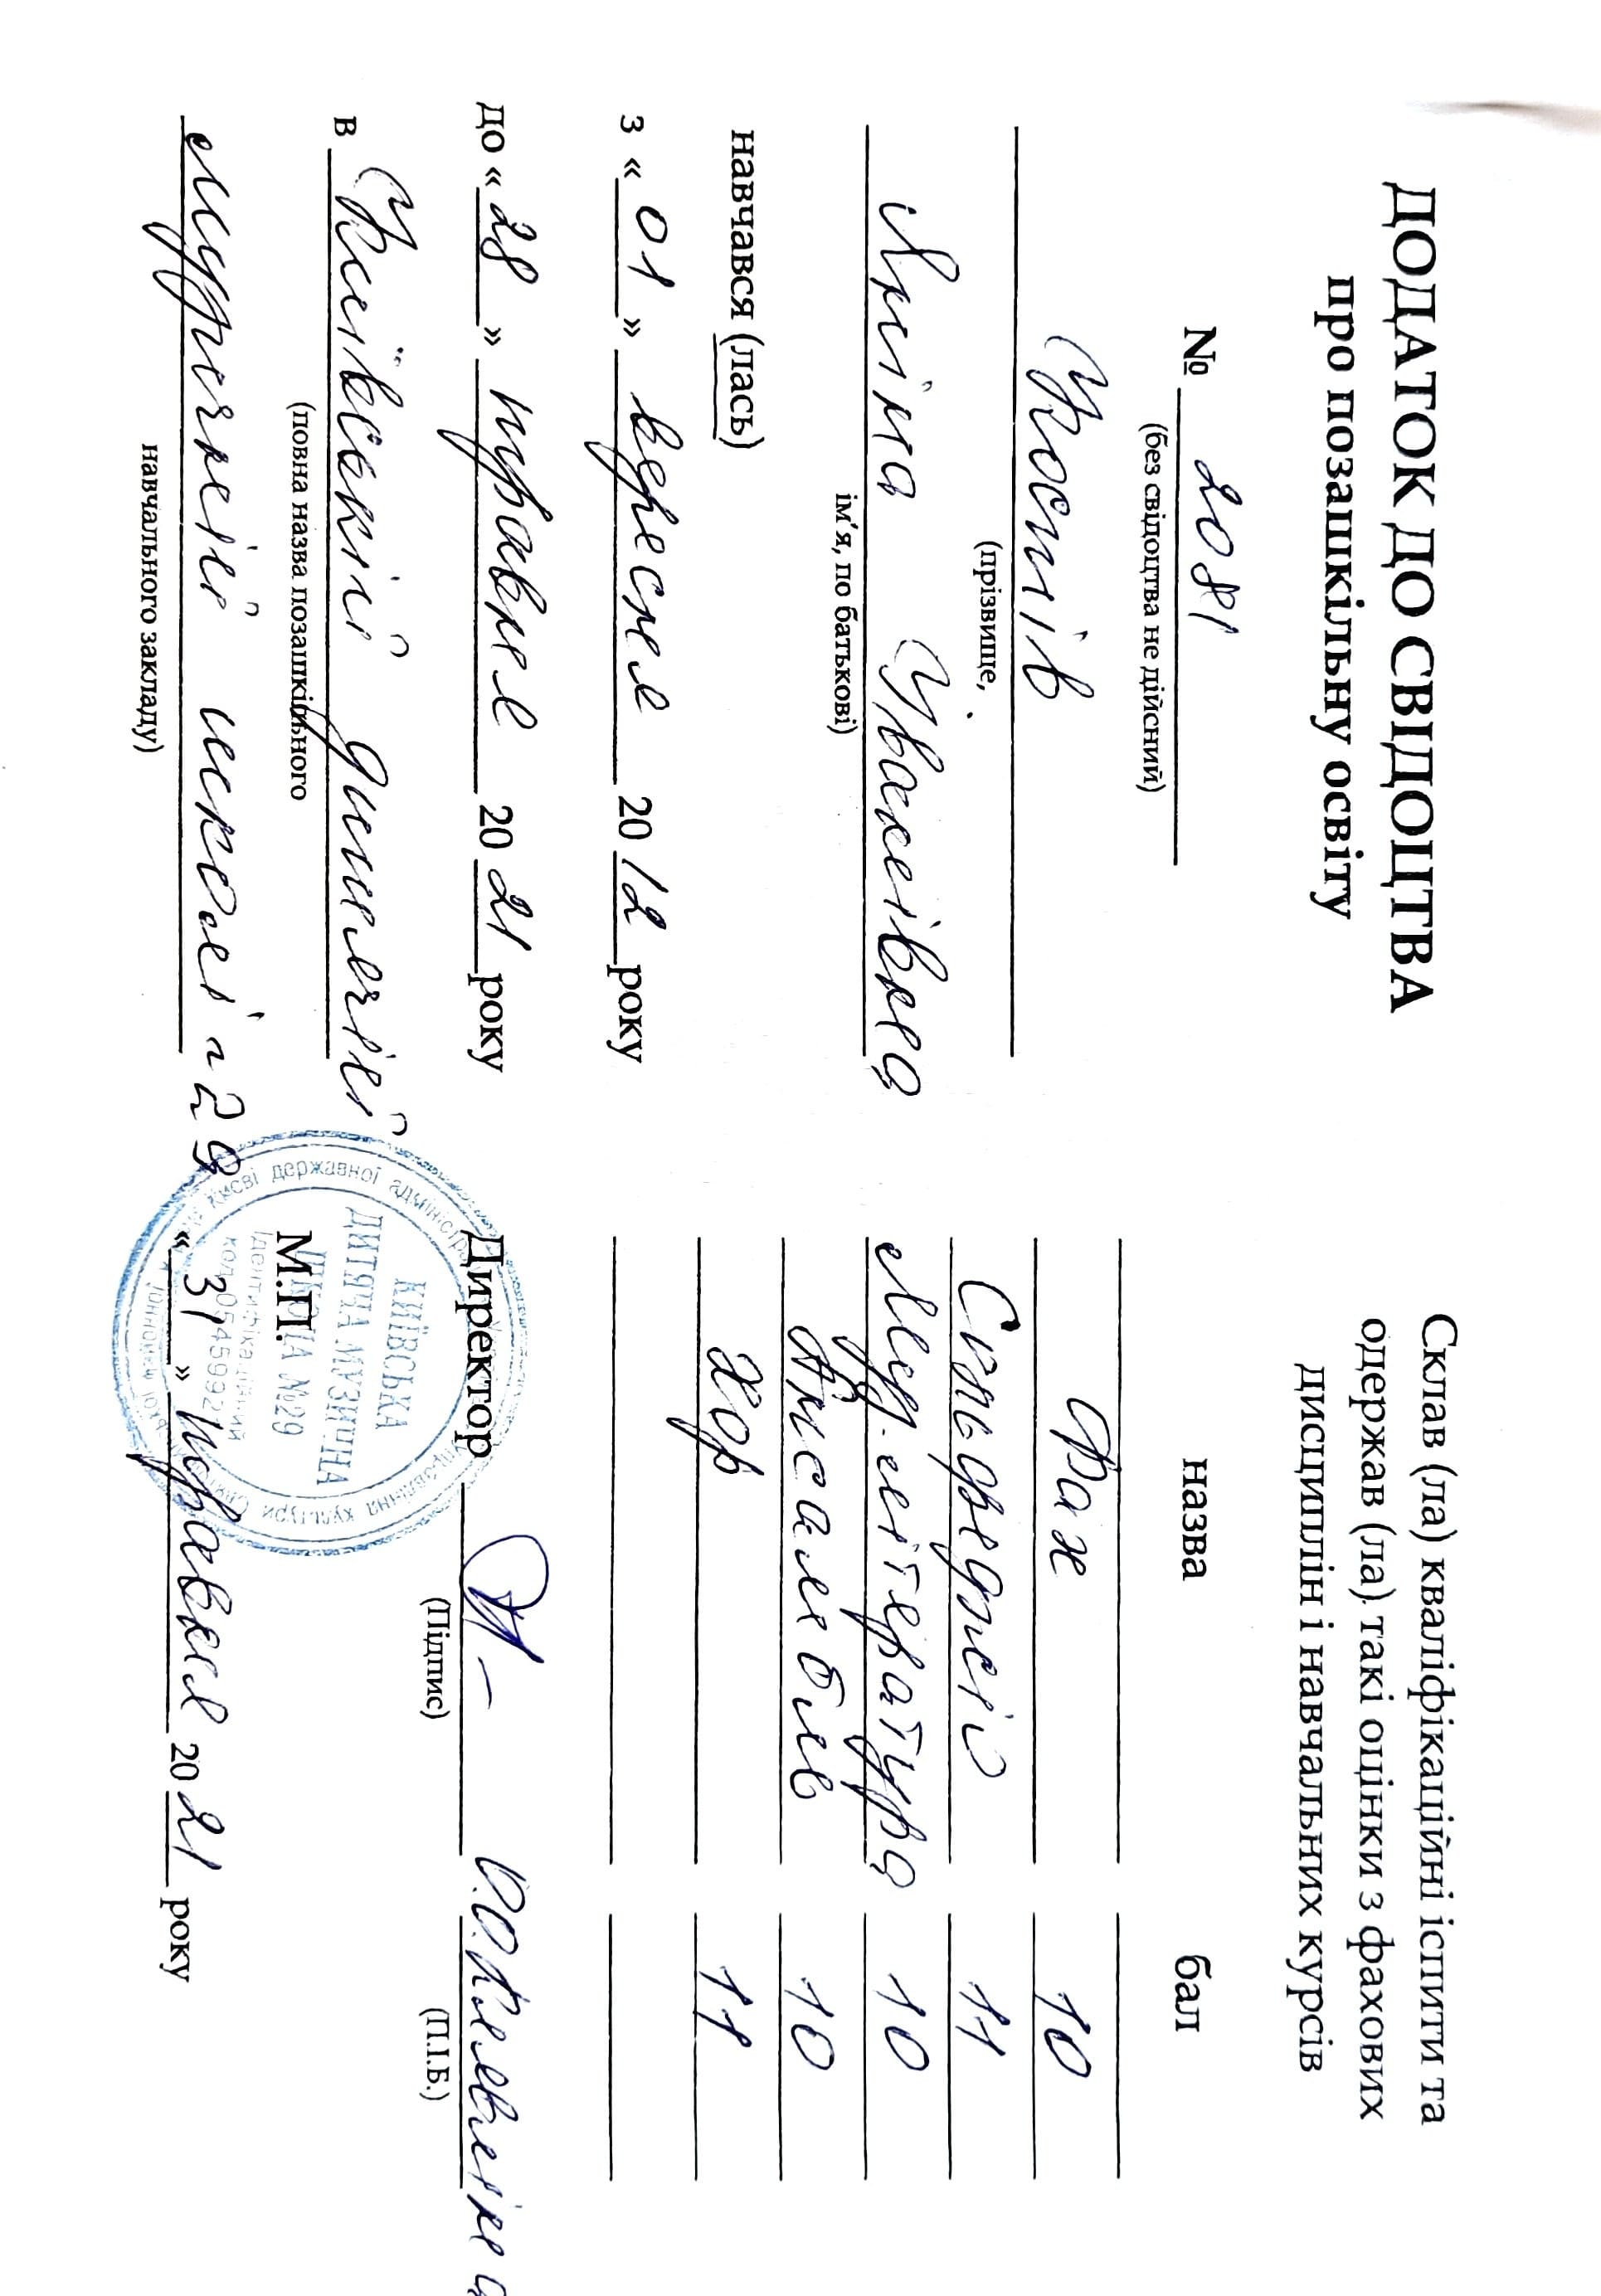 ДОДАТОК ДО СВІДОЦТВА
про позашкільну освіту
№ 2081
(без свідоцтва не дійсний)
Костів
(прізвище,
Яніна Іванівна
ім'я, по батькові)
навчався (лась)
з «01» вересня 2012 року
до «28» травня 2021 року
в Київській дитячій
(повна назва позашкільного
музичній школі №29
навчального закладу)
Склав (ла) кваліфікаційні іспити та
одержав (ла) такі оцінки з фахових
дисциплін і навчальних курсів
назва бал
Фах 10
Сольфеджіо 11
Муз. література 10
Ансамбль 10
Хор 11
Директор О.О. Клявліна
(Підпис) (П.І.Б.)
КИЇВСЬКА
ДИТЯЧА МУЗИЧНА
ШКОЛА №29
М.П.
Ідентифікаційний
код 0545992
«31» травня 2021 року